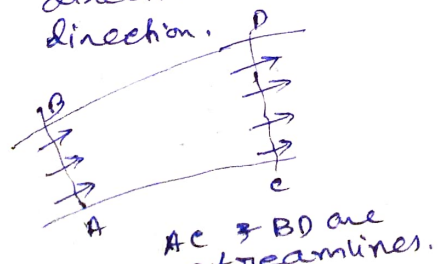 direction.
D
B
C
A
AC & BD are
streamlines.